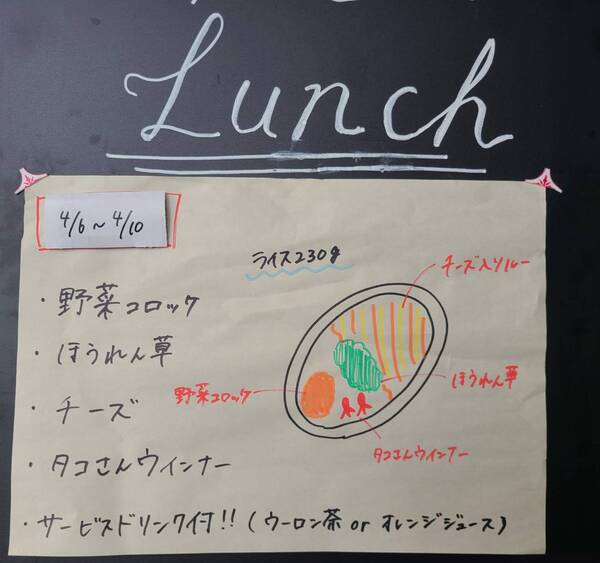 Lunch
4/6～4/10
ライス230g
チーズ入りルー
・野菜コロッケ
・ほうれん草
ほうれん草
野菜コロッケ
・チーズ
タコさんウインナー
・タコさんウインナー
・サービスドリンク付!!(ウーロン茶 or オレンジジュース)